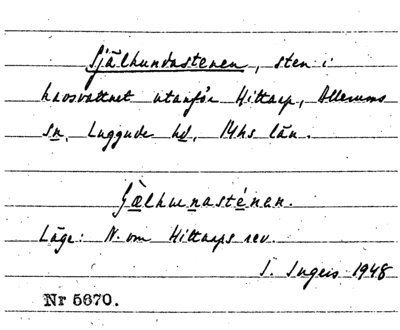 Själhundastenen, sten i
havsvattnet utanför Hittarp, Allerums
sn, Luggude hd, Mhs län.
Själhunasténen.
Läge: N. om Hittarps rev.
I. Ingers 1948
Nr 5670.